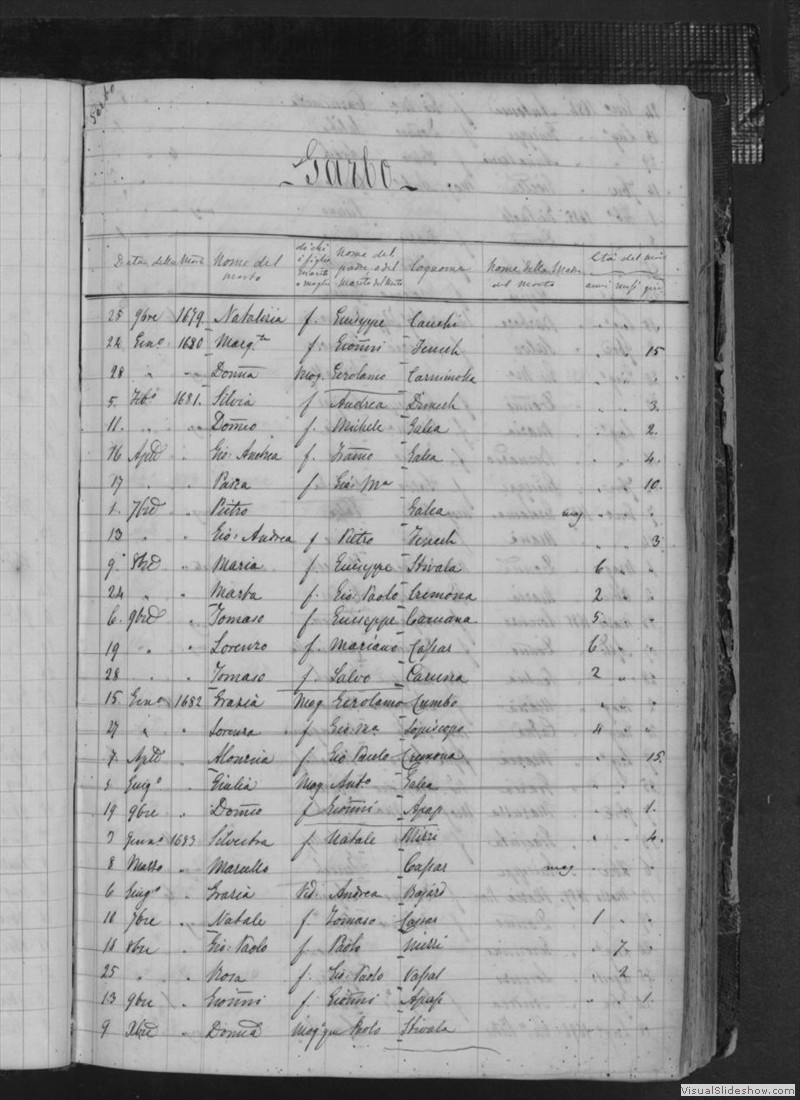 Garbo
Garbo
Data della Morte Nome del morto di chi è figlio marito o moglie Nome del padre o del Marito del Morto Cognome Nome della Madre del Morto Età del morto
anni mesi giorni
25 9bre 1679 Natalizia f. Giuseppe Cauchi
22 Genº 1680 Margta f. Gionni Zenech " " 15
28 " " Donna Mog. Gerolamo
5. Febº 1681. Silvia f Andrea Dimech " " 3.
11. " " Domco f. Michele Galea " " 2.
16 Aple " Gio: Andrea f. Franco Galea " " 4.
17 " . f Gio: Mª " " 10.
1. 7bre " Pietro Galea mag " " "
13 " " Gio: Andrea f Pietro Zenech " " 3
9. 8bre " Maria f Giuseppe Stivala 6 " "
24 " " Marta f. Gio: Paolo Cremona 2 " "
6. 9bre " Tomaso f Giuseppe Caruana 5 " "
19 " " Lorenzo f. Mariano Cassar 6 " "
28 . " Tomaso f. Salvo 2 " "
15 Genº 1682 Grazia Mog. Gerolamo Cumbo " " "
27 " " Lorenza f Gio Mª 4 " "
7. Aple " f. Gio Paolo Cremona " " 15.
Giugº " Giulia Mog. Antº Galea
19 9bre " Domco f Gionni Apap " " 1.
7 Gennº 1683 Silvestra f. Natale Mizzi " " 4.
8 Marzo " Marcello Cassar mag " "
6 Giugº " Grazia Ved. Andrea
18 7bre " Natale f Tomaso Cassar 1 " "
18 8bre " Gio: Paolo f. Paolo Mizzi 7 "
25 " " Rosa f. Gio: Paolo Vassal 2 "
13 9bre " Gionni f Gionni Apap " " 1.
9 Xbre " Donna Mogqm Paolo Stivala
VisualSlideshow.com